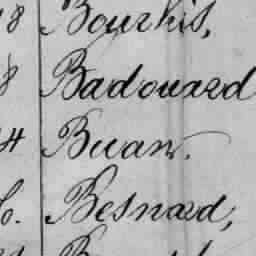 18 Bourhis,
8 Badouard
14 Buan.
6. Besnard,